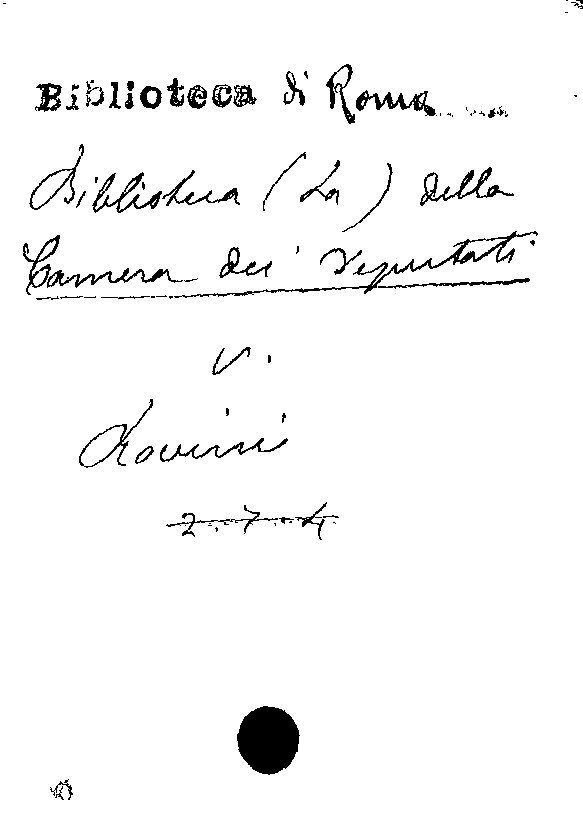 Biblioteca di Roma
Biblioteca (La) della
Camera dei Deputati
V.
Rovini
2.7.4